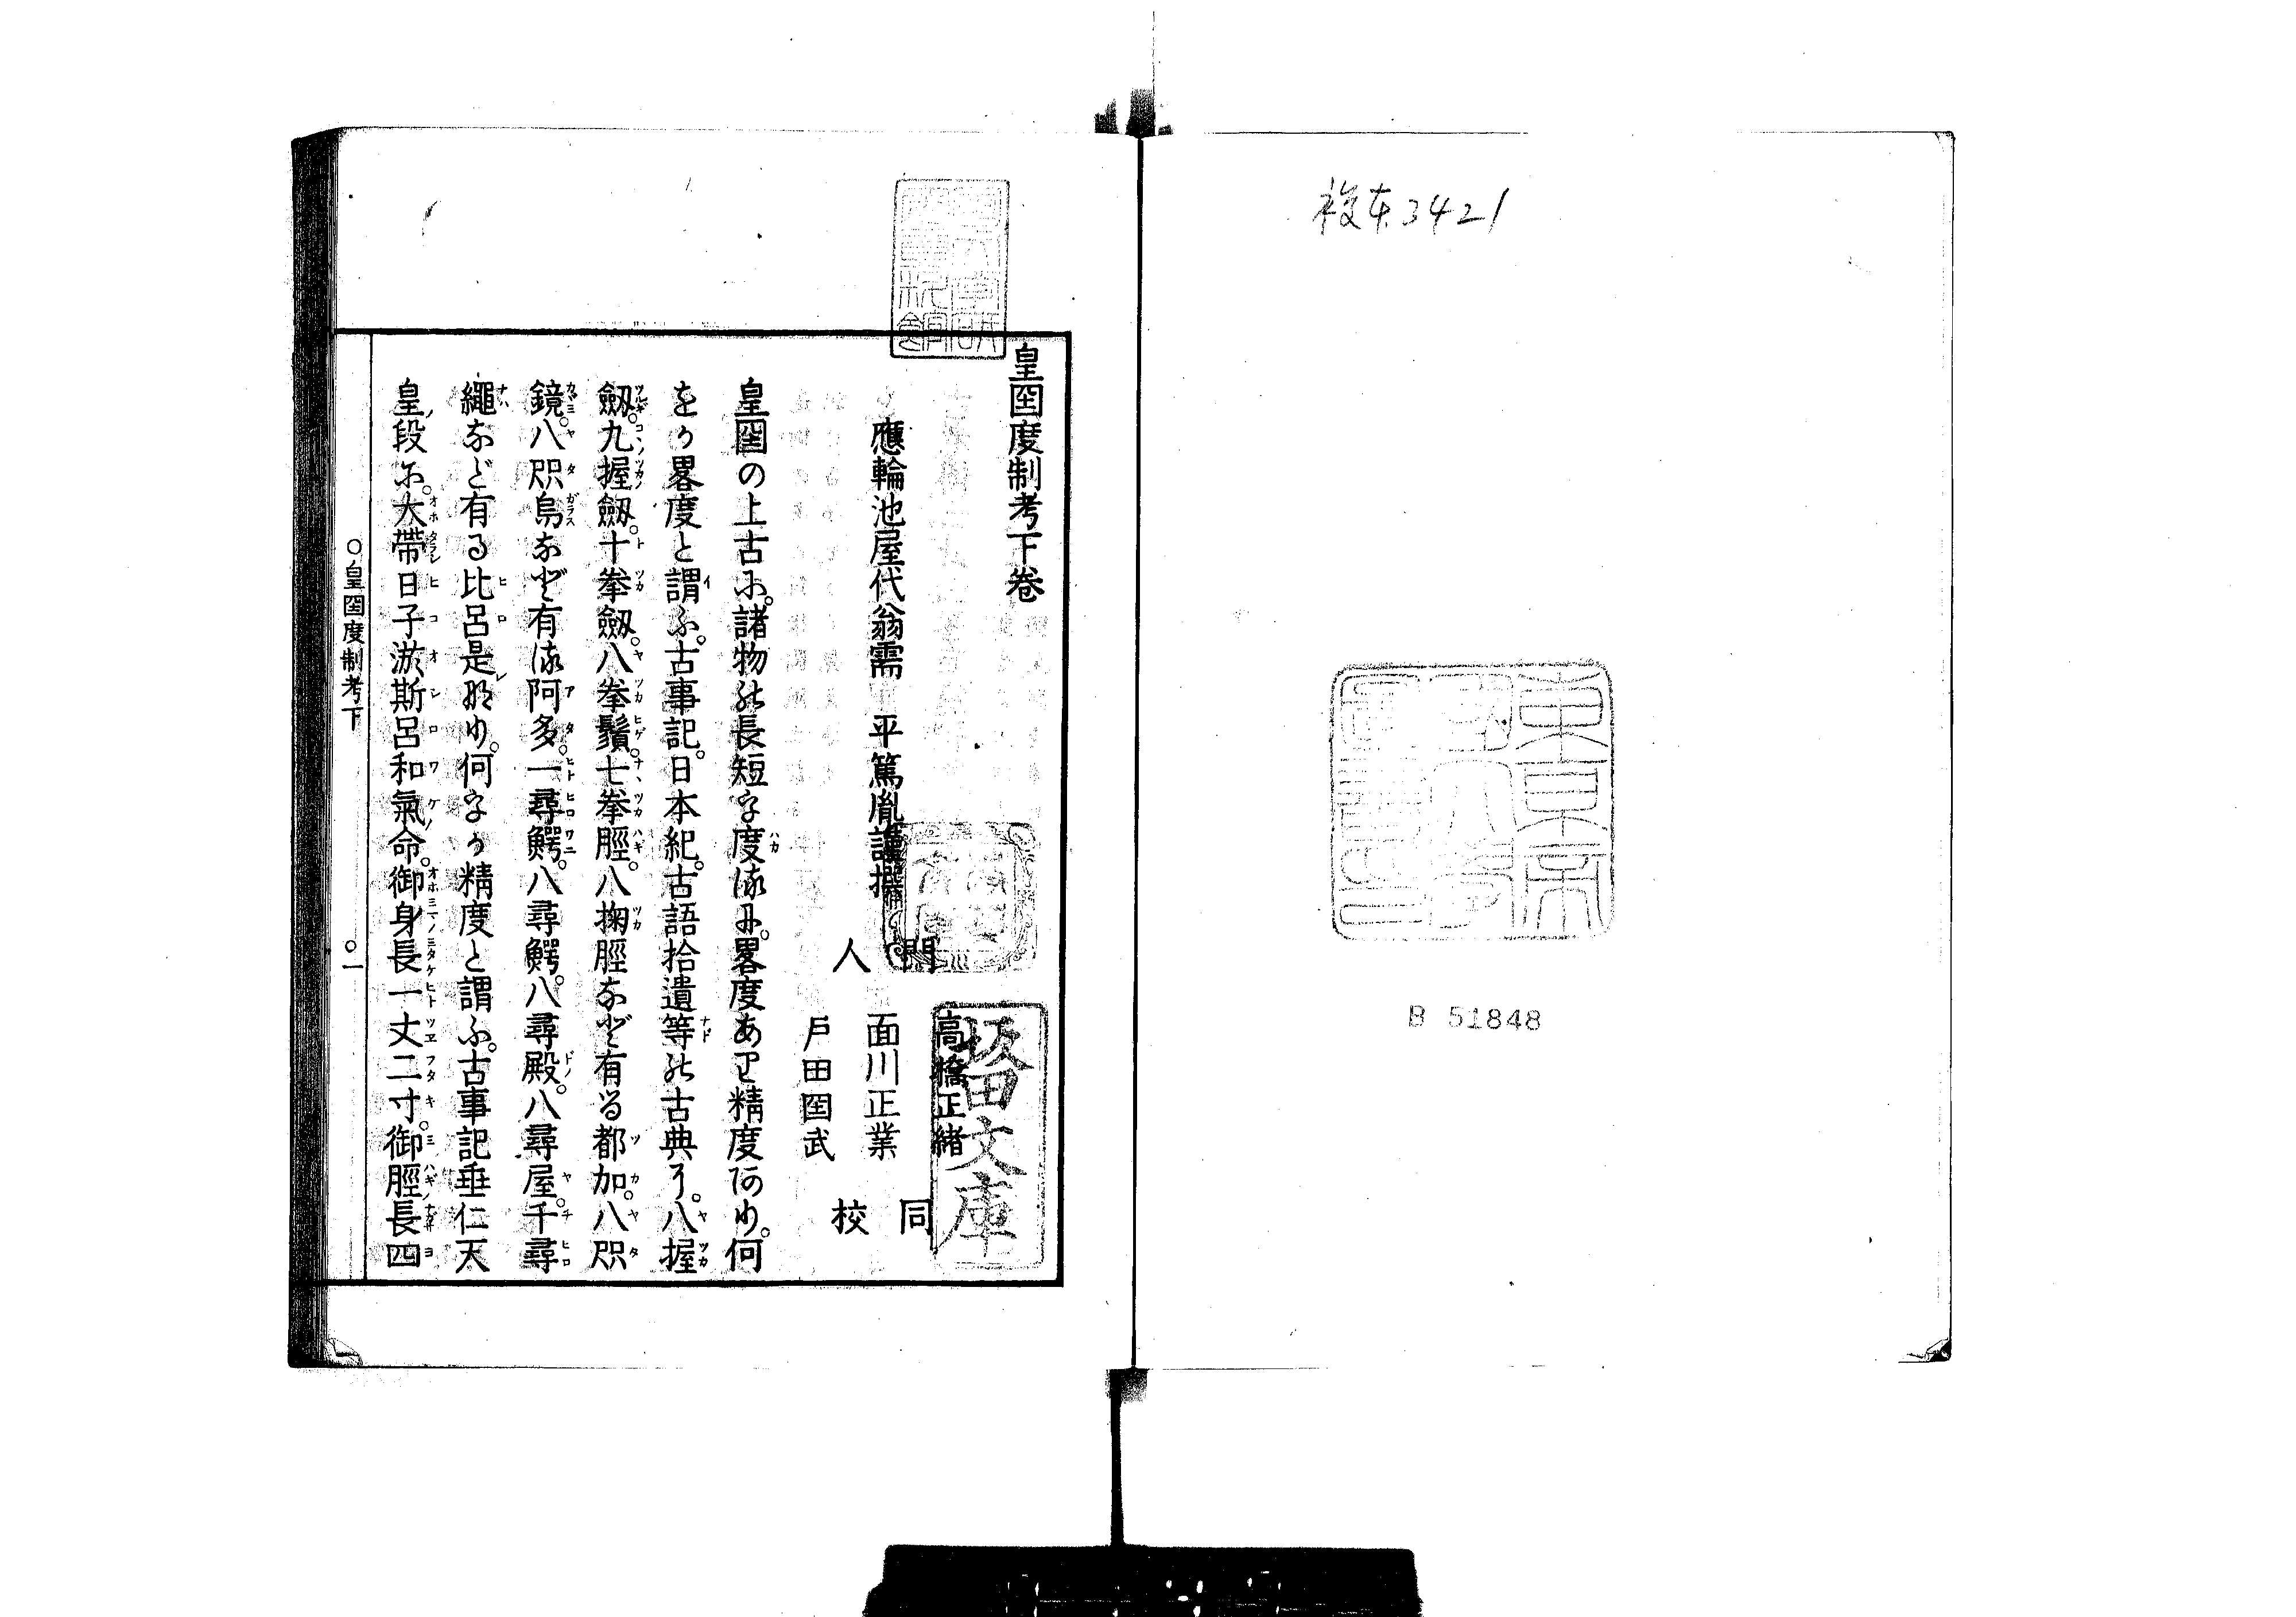 複本3421
東京帝
國大學
圖書印
B 51848
皇圀度制考下卷
應輪池屋代翁需　平篤胤謹撰
門人
高橋正緒
面川正業
戸田圀武
同校
皇圀の上古に。諸物の長短を度るに。畧度あり精度あり。何
をか畧度と謂ふ。古事記。日本紀。古語拾遺等の古典に。八握
劔。九握劔。十拳劔。八拳鬚。七拳脛。八掬脛など有る都加。八咫
鏡。八咫烏など有る阿多。一尋鰐。八尋鰐。八尋殿。八尋屋。千尋
繩など有る比呂是なり。何をか精度と謂ふ。古事記垂仁天
皇段に。大帶日子淤斯呂和氣命。御身長一丈二寸。御脛長四
○皇圀度制考下
○一
阪田文庫